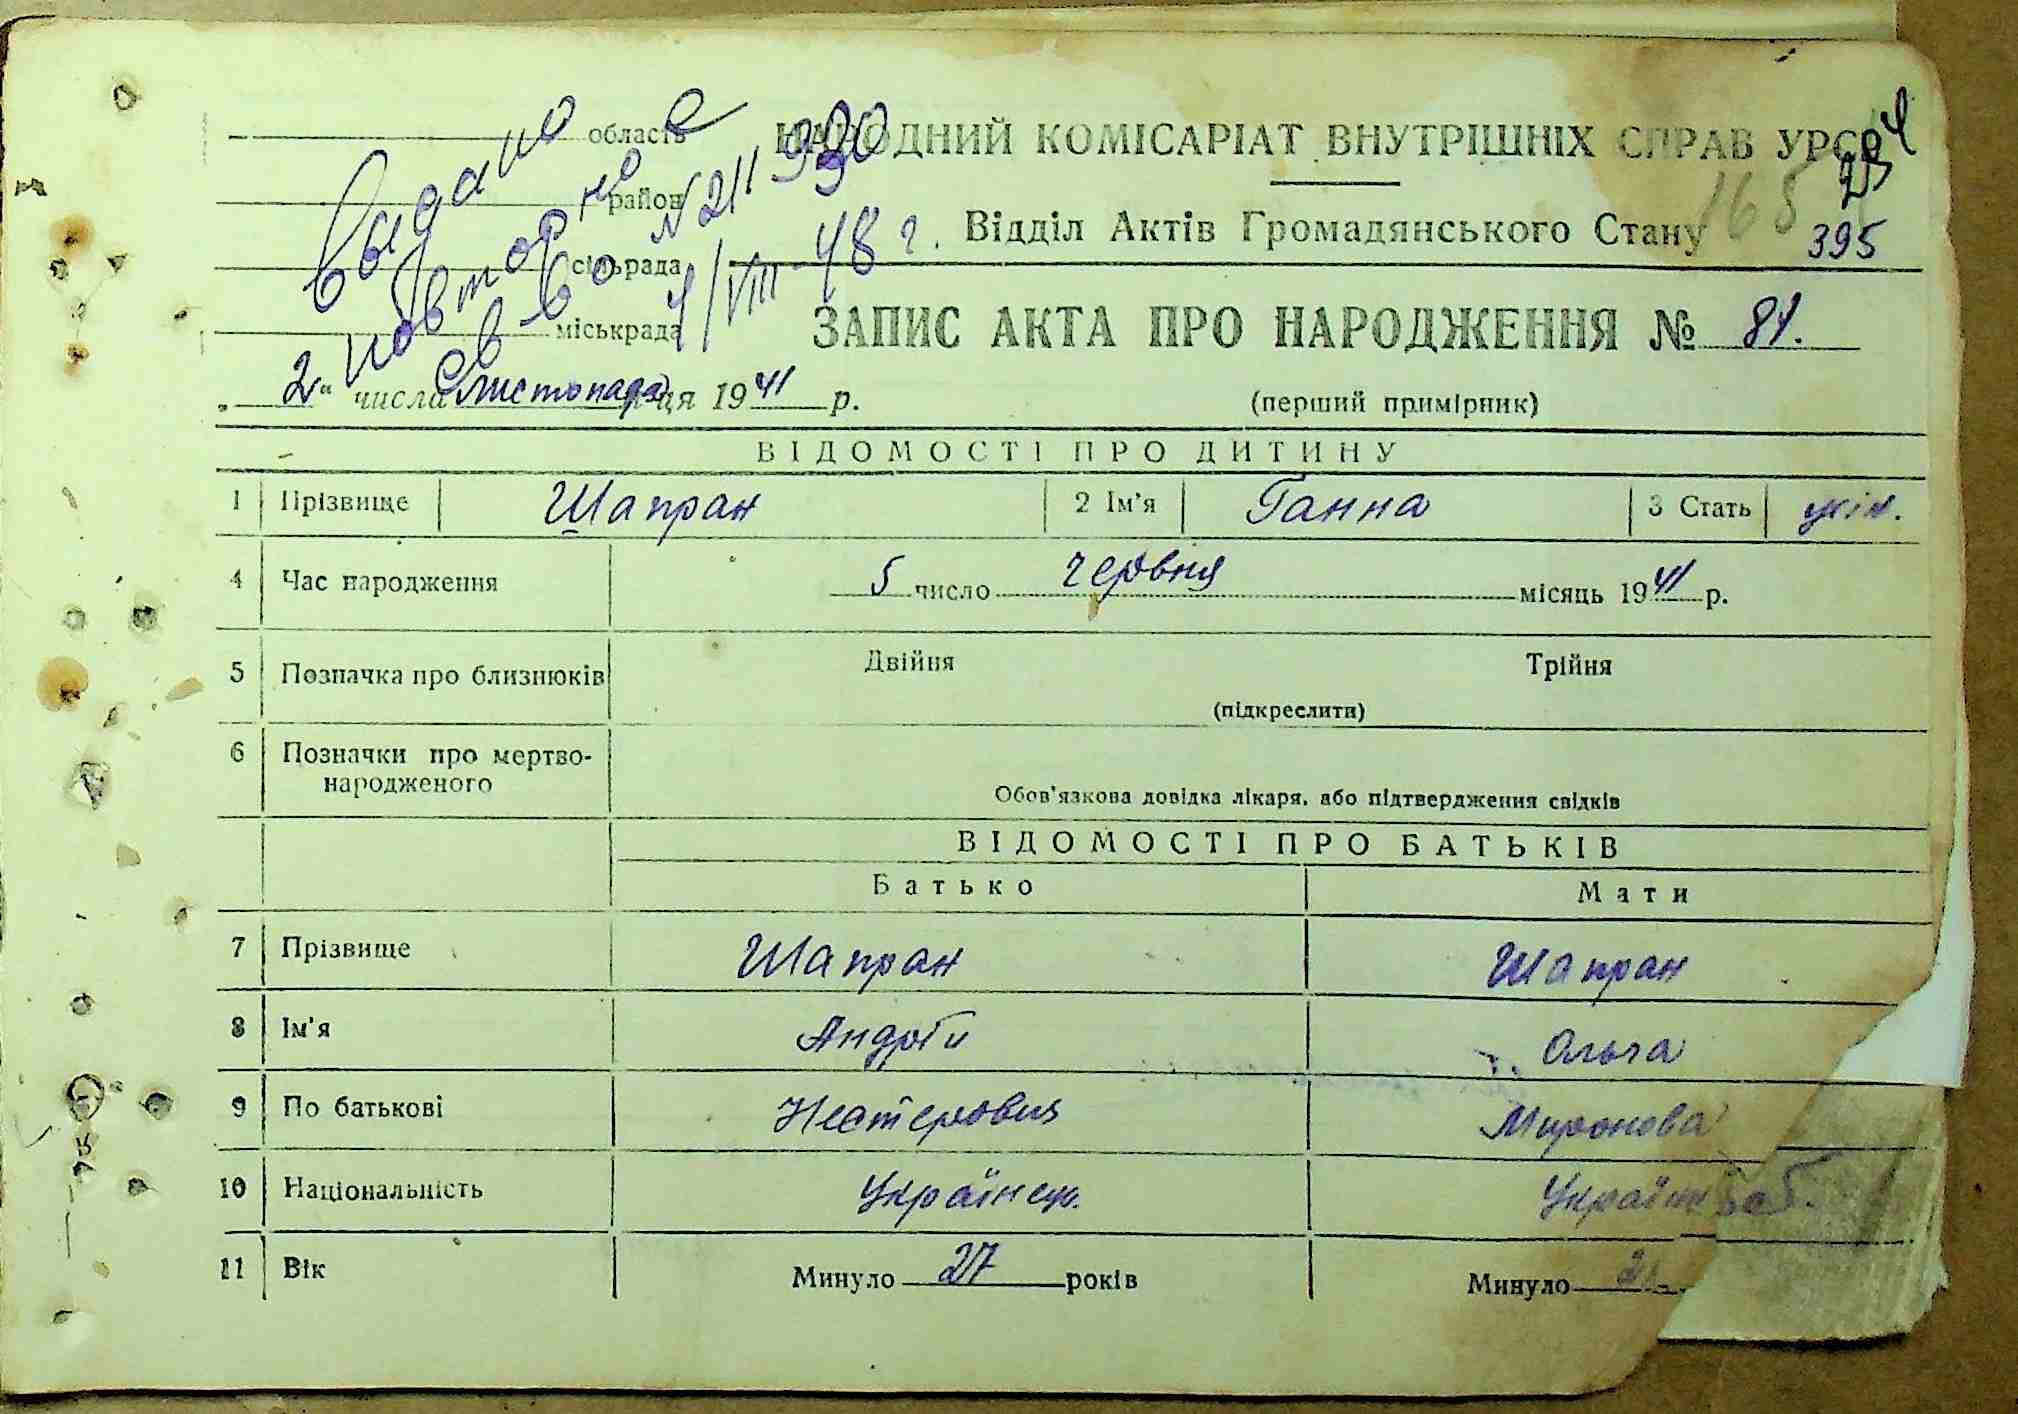 НАРОДНИЙ КОМІСАРІАТ ВНУТРІШНІХ СПРАВ УРСР
165
395
Відділ Актів Громадянського Стану
область
район
сільрада
міськрада
Выдано
повторно
св-во №211930
4/VIII-48 г.
ЗАПИС АКТА ПРО НАРОДЖЕННЯ № 81.
„2“ числа листопада м-ця 1941 р.
(перший примірник)
ВІДОМОСТІ ПРО ДИТИНУ
1 Прізвище Шапран 2 Ім'я Ганна 3 Стать жін.
4 Час народження 5 число червня місяць 1941 р.
5 Позначка про близнюків Двійня Трійня
(підкреслити)
6 Позначки про мертво-
народженого
Обов'язкова довідка лікаря, або підтвердження свідків
ВІДОМОСТІ ПРО БАТЬКІВ
Батько Мати
7 Прізвище Шапран Шапран
8 Ім'я Андрій Ольга
9 По батькові Нестерович Миронова
10 Національність Українец.
11 Вік Минуло 27 років Минуло